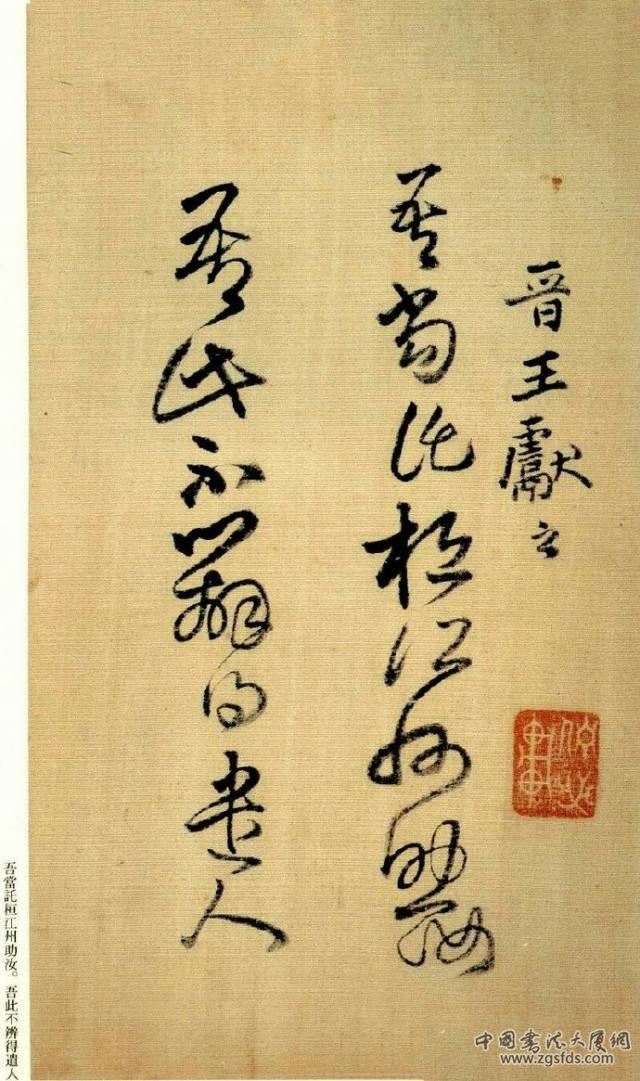 晋王獻之
吾當託桓江州助汝
吾此不辨得遣人
吾當託桓江州助汝。吾此不辨得遣人
中国书法大厦網
www.zgsfds.com